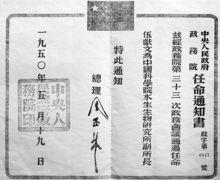 中央人民政府
政務院
任命通知書
政字第
號
茲經政務院第三十三次政務會議通過任命
伍獻文為中國科學院水生生物研究所副所長
特此通知
總理
一九五〇年五月十九日